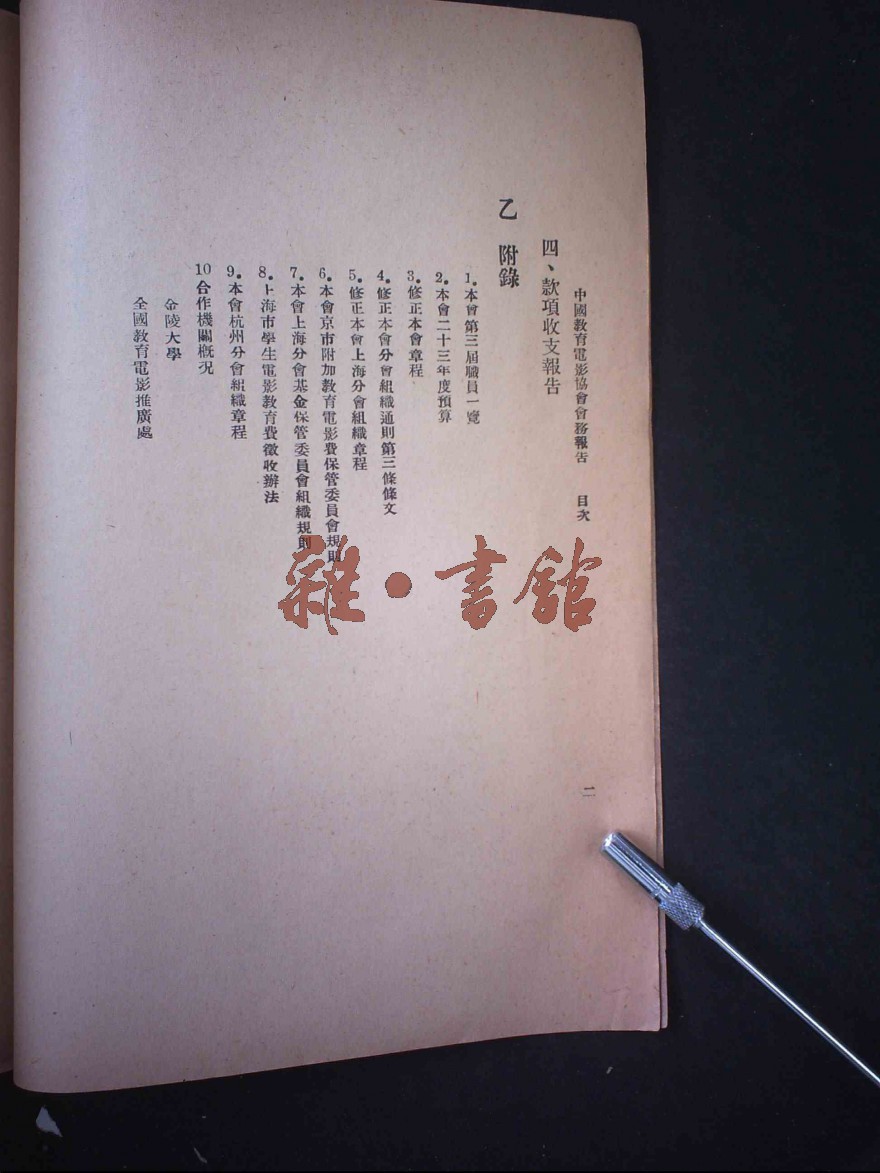 中國教育電影協會會務報告 目次
二
四、款項收支報告
乙 附錄
1. 本會第三屆職員一覽
2. 本會二十三年度預算
3. 修正本會章程
4. 修正本會分會組織通則第三條條文
5. 修正本會上海分會組織章程
6. 本會京市附加教育電影費保管委員會規則
7. 本會上海分會基金保管委員會組織規則
8. 上海市學生電影教育費徵收辦法
9. 本會杭州分會組織章程
10 合作機關概況
金陵大學
全國教育電影推廣處
雜·書館